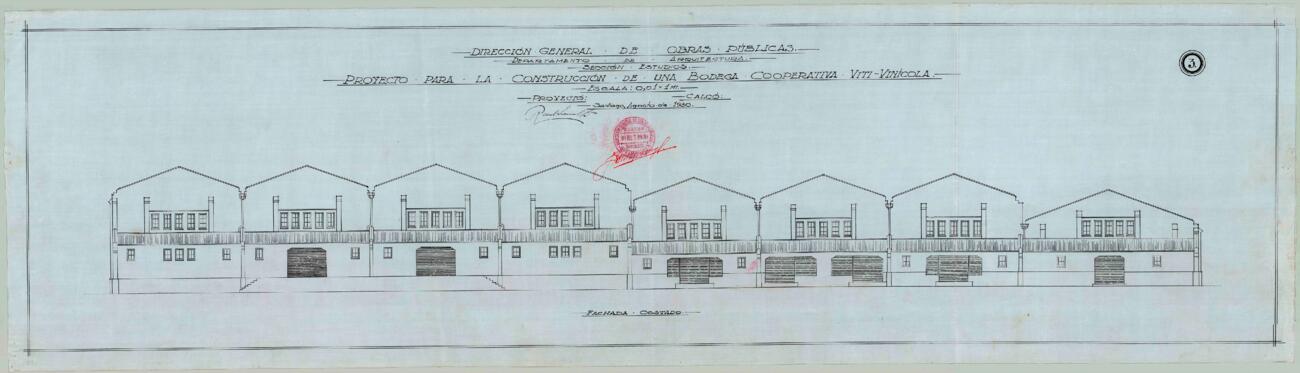 DIRECCIÓN GENERAL · DE · OBRAS PÚBLICAS.
DEPARTAMENTO · DE · ARQUITECTURA.
SECCIÓN ESTUDIOS.
PROYECTO · PARA · LA · CONSTRUCCIÓN · DE · UNA BODEGA COOPERATIVA VITI-VINÍCOLA.
ESCALA: 0,01 = 1 m.
PROYECTÓ: CALCÓ:
Santiago, Agosto de 1930.
3.
FACHADA · COSTADO